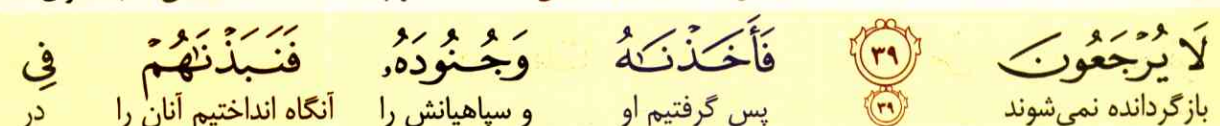 لَا يُرْجَعُونَ ﴿٣٩﴾ فَأَخَذْنَاهُ وَجُنُودَهُۥ فَنَبَذْنَٰهُمْ فِي
بازگردانده نمی‌شوند ﴿۳۹﴾ پس گرفتیم او و سپاهیانش را آنگاه انداختیم آنان را در